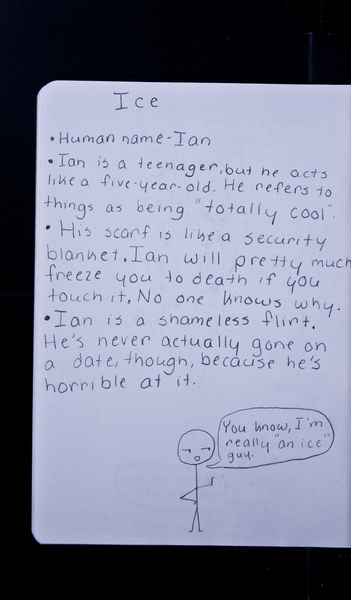 Ice
• Human name - Ian
• Ian is a teenager, but he acts
like a five-year-old. He refers to
things as being "totally cool".
• His scarf is like a security
blanket. Ian will pretty much
freeze you to death if you
touch it. No one knows why.
• Ian is a shameless flirt.
He's never actually gone on
a date, though, because he's
horrible at it.
You know, I'm
really "an ice"
guy.